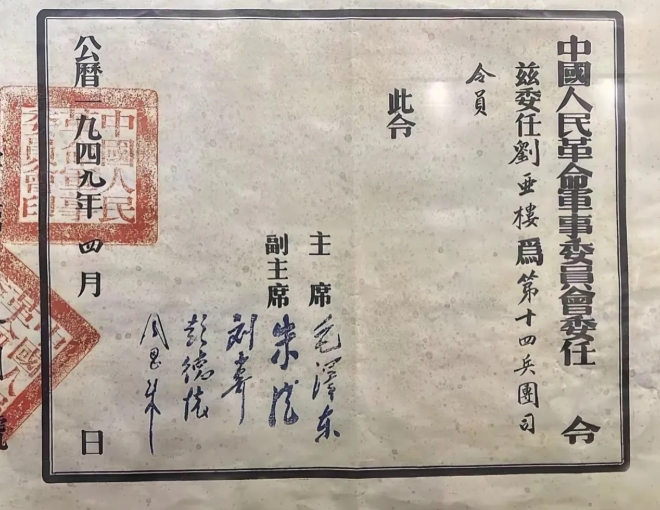 中國人民革命軍事委員會委任令
兹委任劉亜樓爲第十四兵團司
令員
此令
主席 毛澤东
副主席 朱德
刘少奇
彭德怀
周恩来
公曆一九四九年四月 日
中國人民
革命軍事
委員會印